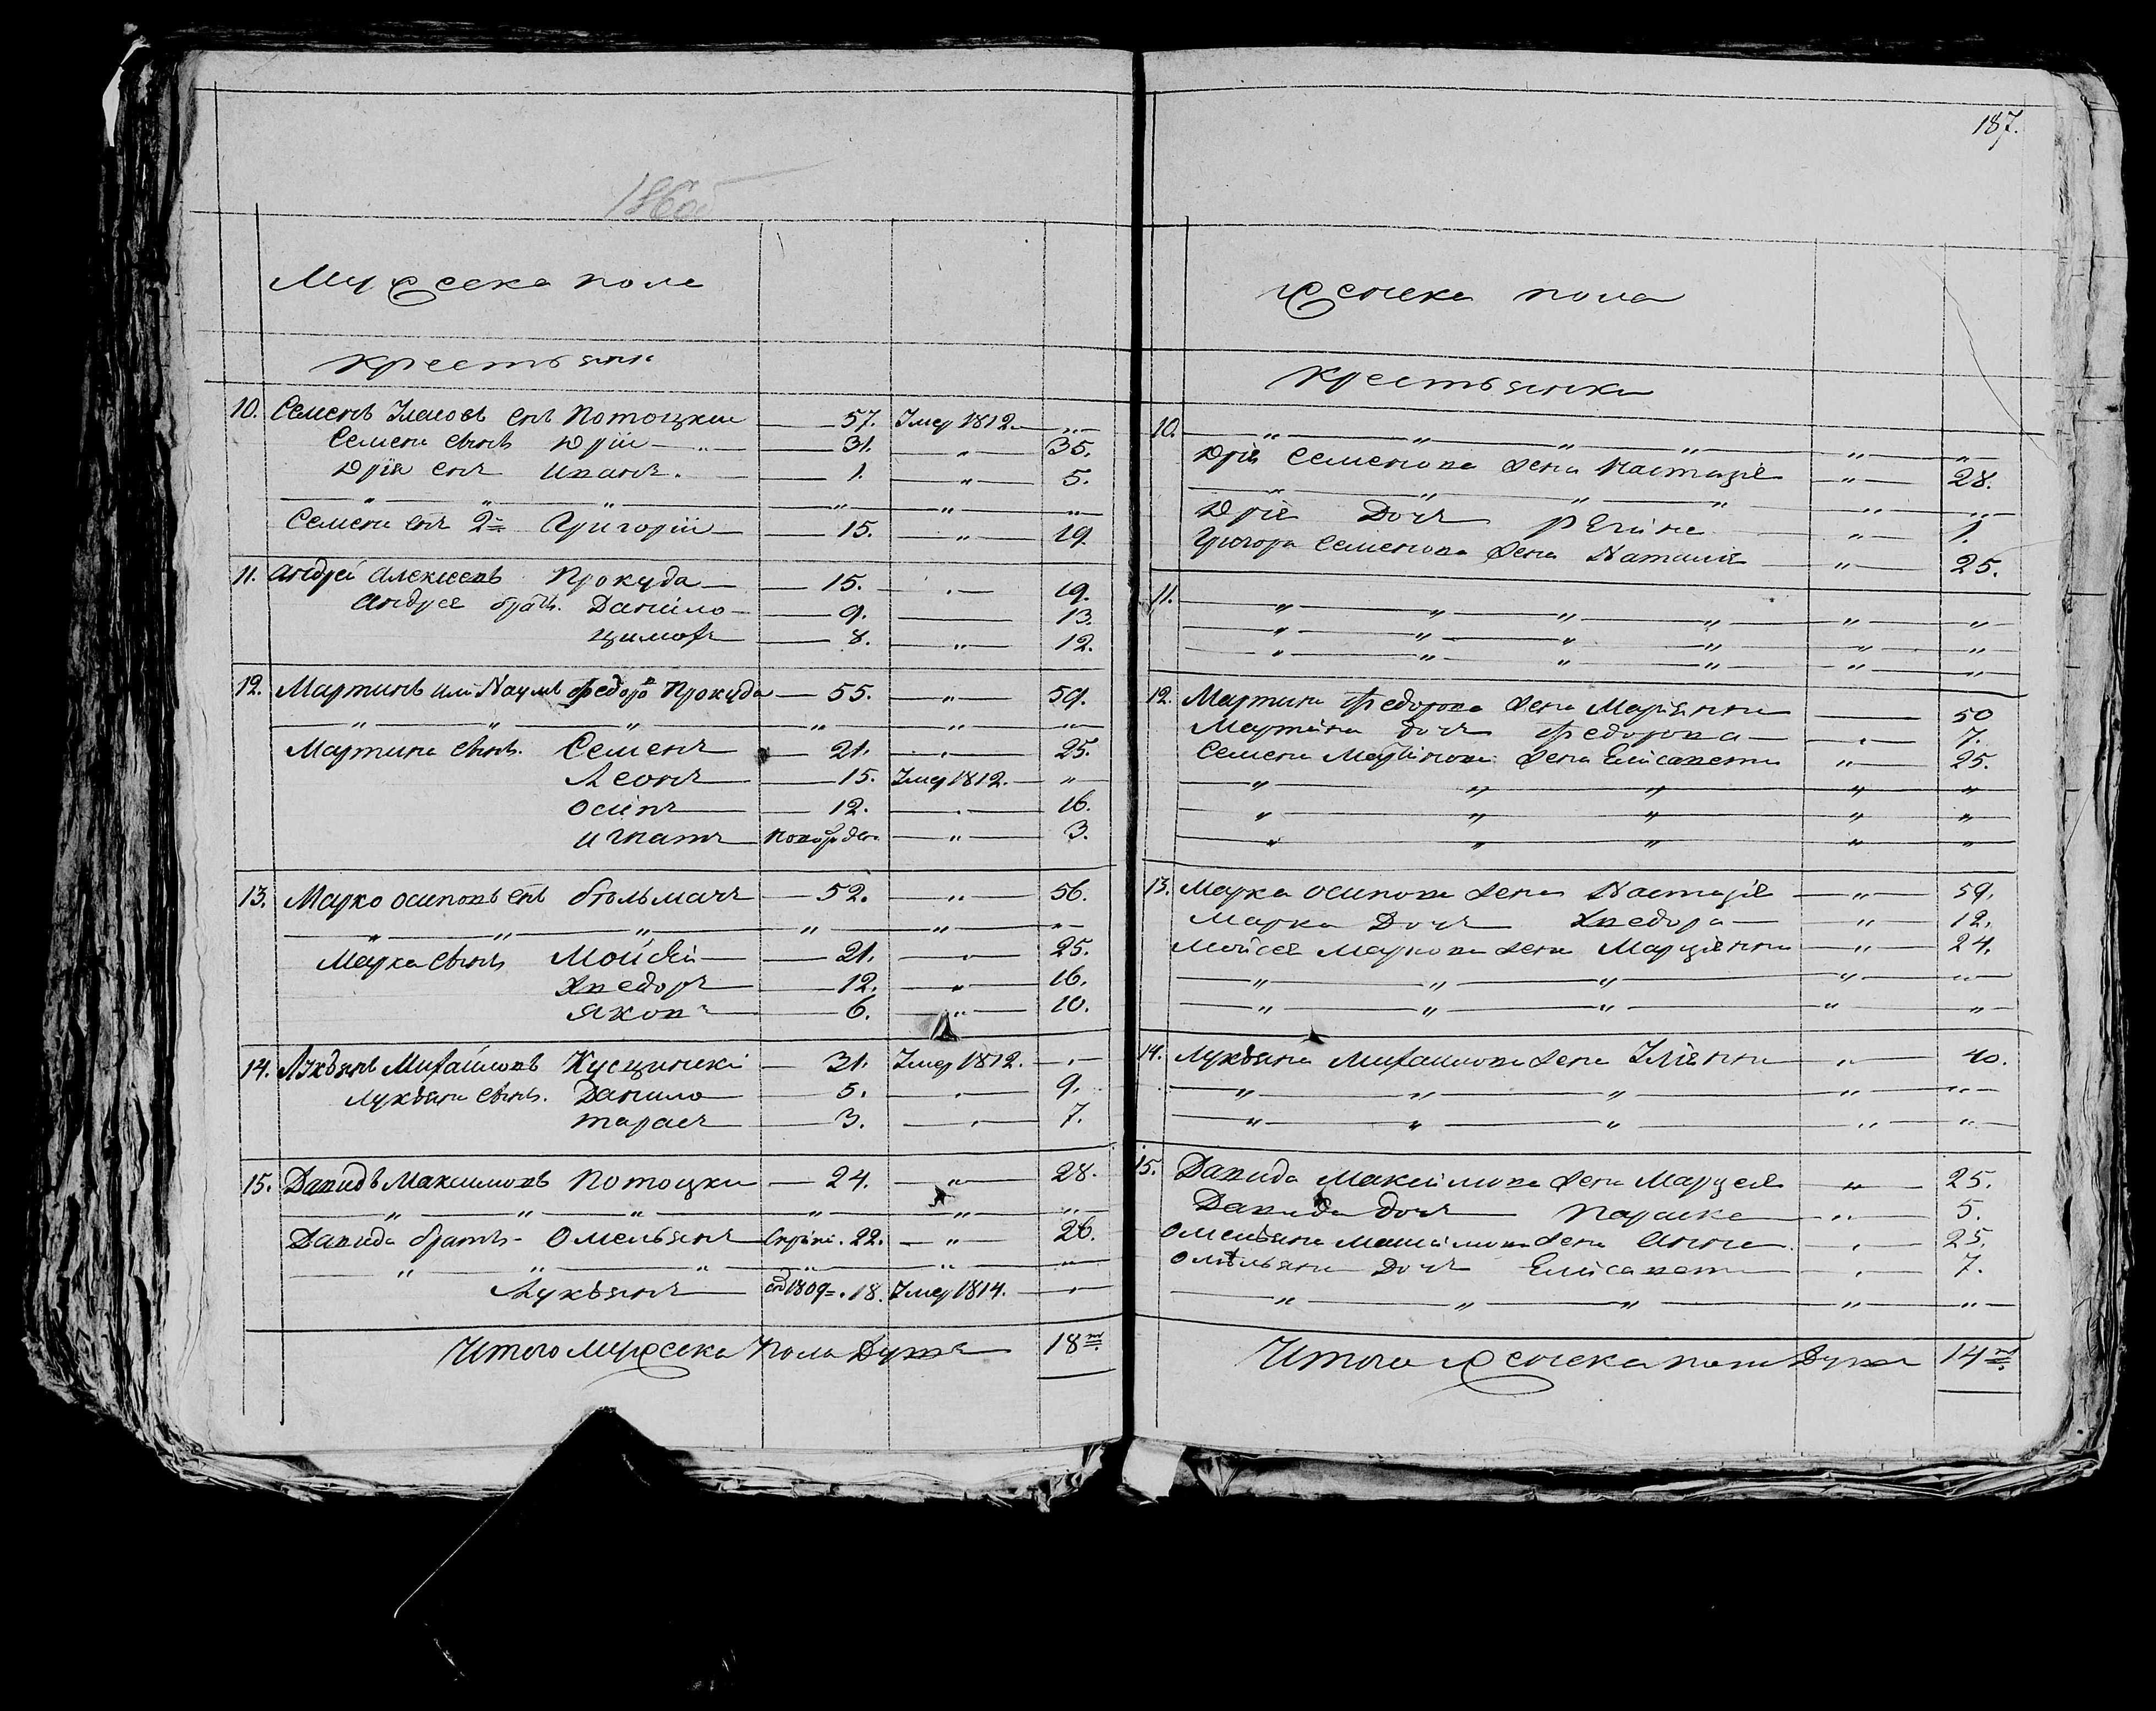 186об
Мужеска пола
крестьяни
10. Семенъ снъ Потоцки — 57. Умер 1812. — „
Семена сынъ Юрiй — „ — 31. — „ — 35.
Юрiя снъ Иванъ. — 1. — „ — 5.
— „ — „ — „ — „ — „ — „
Семена снъ 2й Григорiй — 15. — „ — 19.
11. Андрей Алексеевъ Прокуда — 15. — „ — 19.
Андрея братъ. Данило — 9. — 13.
Цимохъ — 8. — „ — 12.
12. Мартинъ или Наумъ Федоровъ Прокуда — 55. — „ — 59.
— „ — „ — „ — „ — „ — „
Мартина сынъ. Семенъ — 21. — „ — 25.
Леонъ — 15. Умер 1812. — „
Осипъ — 12. — „ — 16.
Игнатъ — — „ — 3.
13. Марко Осиповъ снъ Стольмахъ — 52. — „ — 56.
— „ — „ — „ — „ — „ — „
Марка сынъ Мойсей — 21. — „ — 25.
Хведоръ — 12. — „ — 16.
Яковъ — 6. — „ — 10.
14. Лукьянъ Михайловъ Кусцински — 31. Умер 1812. — „
Лукьяна сынъ. Данило — 5. — „ — 9.
Тарасъ — 3. — „ — 7.
15. Давидъ Максимовъ Потоцки — 24. — „ — 28.
— „ — „ — „ — „ — „ — „
Давида братъ — Омельянъ 22. — „ — 26.
— „ — „ — „ — „ — „ — „
Лукьянъ — 1809 = . 18. Умер 1814. — „
Итого мужеска пола душъ — 18
187.
женска пола
крестьянки
10. — „ — „ — „ — „ — „ — „
Юрiя Семенова жена Настазiя — „ — 28.
— „ — „ — „ — „ — „ — „
Юрiя дочъ Регина — „ — 1.
Григора Семенова жена Наталiя — „ — 25.
11. — „ — „ — „ — „ — „ — „
— „ — „ — „ — „ — „ — „
— „ — „ — „ — „ — „ — „
12. Мартина Федорова жена Марiянна — 50
Мартина дочъ Федорова — „ — 7.
Семена Мартинова жена Елисавета „ — 25.
— „ — „ — „ — „ — „
— „ — „ — „ — „ — „
— „ — „ — „ — „ — „
13. Марка Осипова жена Настазiя — „ — 59.
Марка дочъ Хведора — „ — 12.
Мойсея Маркова жена Марцiянна — „ — 24.
— „ — „ — „ — „ — „
— „ — „ — „ — „ — „
14. Лукьяна Михайлова жена Улiянна — „ — 40.
— „ — „ — „ — „ — „
— „ — „ — „ — „ — „
15. Давида Максимова жена Марцеля „ — 25.
Давида дочъ — Параска — „ — 5.
Омельяна жена Анна — „ — 25.
Омельяна дочъ Елисавета — „ — 7.
— „ — „ — „ — „ — „
Итого женска пола душъ 14